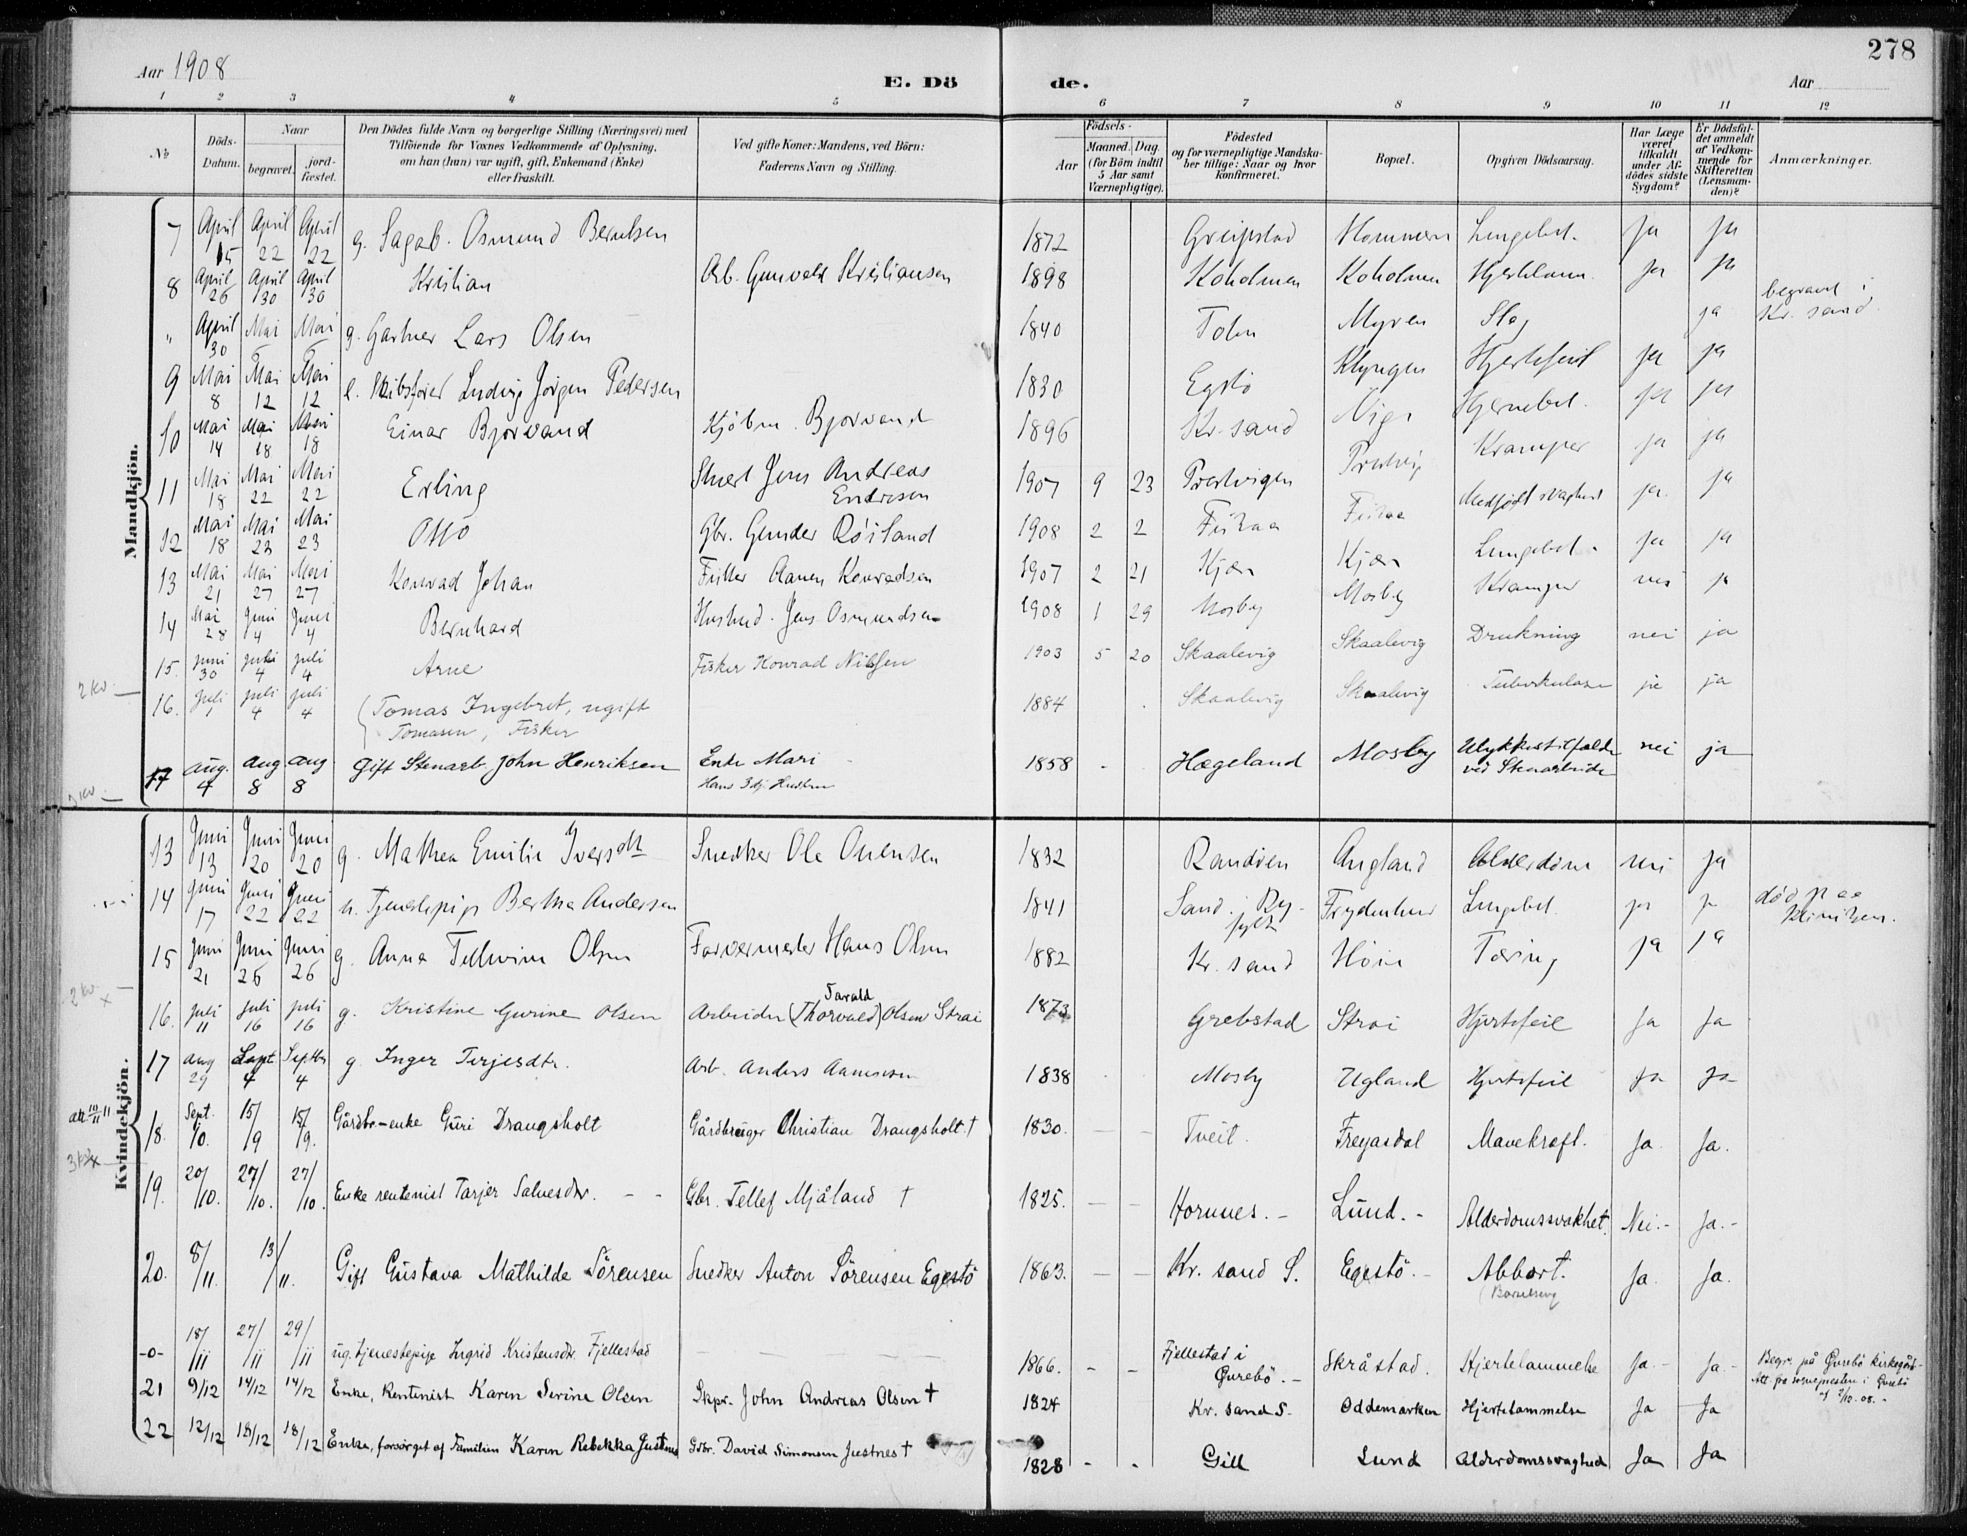 278
Aar 1908
E. Dö
de.
Aar
1 2 3 4 5 6 7 8 9 10 11 12
№
Döds-Datum.
Naar
begravet.
jord-fæstet.
Den Dödes fulde Navn og borgerlige Stilling (Næringsvei) med
Tilföiende for Voxnes Vedkommende af Oplysning,
om han (hun) var ugift, gift, Enkemand (Enke)
eller fraskilt.
Ved gifte Koner: Mandens, ved Börn:
Faderens Navn og Stilling.
Födsels-
Aar
Maaned. Dag.
(for Börn indtil
5 Aar samt
Værnepligtige).
Födested
og for værnepligtige Mandska-
ber tillige: Naar og hvor
konfirmeret.
Bopæl.
Opgiven Dödsaarsag.
Har Læge
været
tilkaldt
under Af-
dödes sidste
Sygdom?
Er Dödsfal-
det anmeldt
af Vedkom-
mende for
Skifteretten
(Lensman-
den)?
Anmærkninger.
Mandkjön.
7 April 15 April 22 April 22 g. Sagab. Osmund Berntsen 1872 Greipstad Hommeren Lungebet. ja ja
8 April 26 April 30 April 30 Kristian Arb. Gunvald Kristiansen 1898 Koholmen Koholmen Hjertelam. ja ja
" April 30 Mai Mai g. Gartner Lars Olsen 1840 Myren Slag ja begravet i Kr. sand.
9 Mai 8 Mai 12 Mai 12 e. Skibsfører Ludvig Jörgen Pedersen 1830 Egstö Klyngen Hjertefeil ja ja
10 Mai 14 Mai 18 Mai 18 Einar Bjorvand Kjöbm. Bjorvand 1896 Kr. sand Hjernebet. ja ja
11 Mai 18 Mai 22 Mai 22 Erling Jens Andreas Endresen 1907 9 23 Prestvigen Prestvig Kramper ja ja
12 Mai 18 Mai 23 Mai 23 Otto Gbr. Gunder Röisland 1908 2 2 Fiskaa Fiskaa Medfödt svaghed ja ja
13 Mai 21 Mai 27 Mai 27 Konrad Johan Aanen Konradsen 1907 2 21 Kjær Kjær Lungebet. ja ja
14 Mai 28 Juni 4 Juni 4 Bernhard Husmd. Jens Osmundsen 1908 1 29 Mosby Mosby Kramper nei ja
15. juni 30 juli 4 juli 4 Arne Fisker Konrad Nilssen 1903 5 20 Skaalevig Skaalevig Drukning nei ja
2 kv.
16. juli 1 juli 4 juli 4 Tomas Ingebret, ugift
Tomasen, Fisker 1884 Skaalevig Skaalevig Tuberkulose ja ja
17 aug. 4 aug 8 aug 8 Gift Stenarb. John Henriksen Enke Mari
Hans 3dj. Hustru 1858 Hægeland Mosby Ulykkestilfælde
ved Stenarbeide nei ja
Kvindekjön.
13 Juni 13 Juni 20 Juni 20 g. Mathea Emilie Iversdtr Snedker Ole Onensen 1832 Randöen Augland Alderdom nei ja
14 juni 17 Juni 22 Juni 22 u. Tjenestepige Bertha Andersen 1841 Sand. Ry-
fylke Frydenlund Lungebet. ja ja död paa
Kliniken.
15 Juni 21 Juni 26 Juni 26 g. Anna Tellvine Olsen Farvermester Hans Olsen 1882 Kr. sand Höie Tæring ja ja
2 kv. x
16. juli 11 juli 16 juli 16 g. Kristine Gurine Olsen Arbeider (Thorvald) Tarald Olsen Strai 1873 Grebstad Strai Hjertefeil Ja Ja
17 aug 29 Sept. 4 Septbr 4 g. Inger Terjesdtr. Arb. Anders Aanensen 1838 Mosby Ugland Hjertefeil Ja Ja
att. 10/11 11
18. Sept. 10. 15/9 15/9. Gårdbr-enke Guri Drangsholt Gårdbruger Christian Drangsholt † 1830. Tveit. Frejasdal Mavekræft. Ja. Ja.
19. 20/10. 27/10. 27/10. Enke rentenist Tarjer Salvesdtr. Gbr. Tellef Mjåland † 1825. Hornnes. Lund. Alderdomssvakhet. Nei. Ja.
20. 8/11. 13/11. Gift Gustava Mathilde Sörensen Snedker Anton Sörensen Egestö 1863. Kr. sand S. Egestö. Abbort.
(Barselseng Ja. Ja.
-o- 18/11 27/11 29/11 ug. tjenestepige Ingrid Kristensdtr. Fjellestad 1866. Fjellestad i
Øvrebö. Skråstad. Hjertelammelse Ja. Ja. Begr. på Øvrebö kirkegård
Att. fra sognepresten i Øvrebö
af 2/12. 08.
21 9/12 14/12 14/12 Enke, Rentenist Karen Serine Olsen Skpr. John Andreas Olsen † 1824 Kr. sand S. Oddemarken Hjertelammelse Ja Ja
22 12/12 18/12 18/12 Enke, forsörget af Familien Karen Rebekka Justnes Gdbr. David Simonsen Justnes † 1828 Gill Lund Alderdomssvaghed Ja Ja